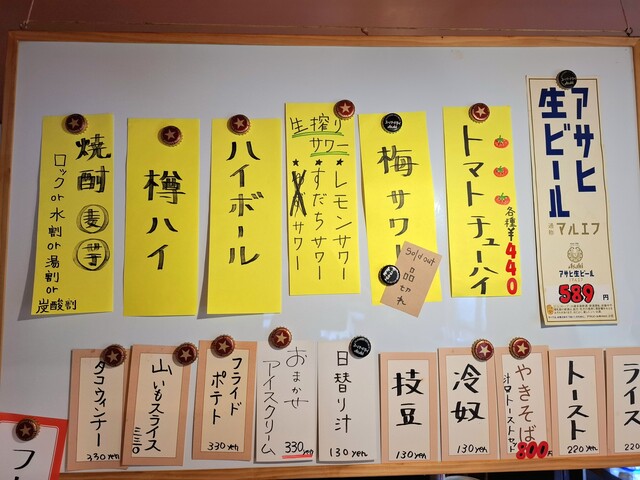 アサヒ
生ビール
通称 マルエフ
Asahi
アサヒ生ビール
589円
トマトチューハイ
各種¥440
梅サワー
Sold out
品切れ
生搾り
サワー
★レモンサワー
★すだちサワー
サワー
ハイボール
樽ハイ
焼酎 麦 芋
ロックor水割or湯割or
炭酸割
ライス
220
トースト
220 yen
やきそば
汁orトーストセット
800円
冷奴
130 yen
枝豆
130 yen
日替り汁
130 yen
おまかせ
アイスクリーム
330 yen
フライド
ポテト
330 yen
山いもスライス
330
タコウィンナー
330 yen
フ